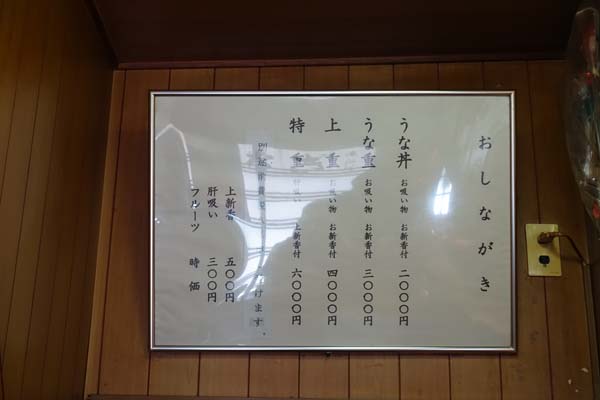 おしながき
うな丼 お吸い物 お新香付 二〇〇〇円
うな重 お吸い物 お新香付 三〇〇〇円
上重 お吸い物 お新香付 四〇〇〇円
特重 肝吸い 上新香付 六〇〇〇円
別途消費税 けます。
上新香 五〇〇円
肝吸い 三〇〇円
フルーツ 時価